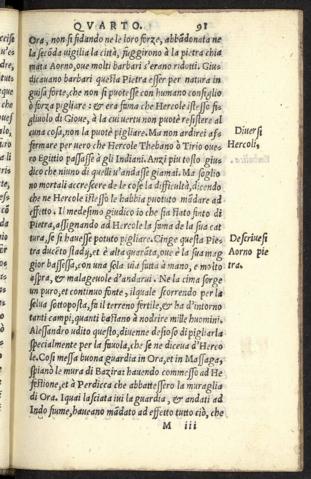 QVARTO. 91
Ora, non si fidando ne le loro forze, abbãdonata ne
la secõda vigilia la città, fuggirono à la pietra chia
mata Aorno, oue molti barbari s'erano ridotti. Gius
dicauano barbari questa Pietra esser per natura in
guisa forte, che non si puotesse con humano consiglio
ò forza pigliare : & era fama che Hercole istesso fi=
gliuolo di Gioue, à la cui uertu non puotè resistere al
cuna cosa, non la puotè pigliare. Ma non ardirei af=
fermare per uero che Hercole Thebano ò Tirio oue=
ro Egittio passasse à gli Indiani. Anzi piu tosto giu=
dico che niuno di quelli u'andasse giamai. Ma soglio
no mortali accrescere de le cose la difficultà, dicendo
che ne Hercole istesso le habbia puotuto mãdare ad
effetto. Il medesimo giudico io che sia stato finto di
Pietra, assignando ad Hercole la fama de la sua cat
tura, se si hauesse potuto pigliare. Cinge questa Pie=
tra ducẽto stadij, et è alta quarãta, oue è la sua mag
gior bassezza, con una sola uia fatta à mano, e molto
aspra, & malageuole d'andarui. Ne la cima sorge
un puro, et continuo fonte, ilquale scorrendo per la
selua sottoposta, fa il terreno fertile, & ha d'intorno
tanti campi, quanti bastano à nodrire mille huomini.
Alessandro udito questo, diuenne desioso di pigliarla
specialmente per la fauola, che se ne diceua d'Herco
le. Cosi messa buona guardia in Ora, et in Massaga,
spianò le mura di Bazira: hauendo commesso ad He
festione, et à Perdicca che abbattessero la muraglia
di Ora. Iquai lasciata iui la guardia, & andati ad
Indo fiume, haueano mãdato ad effetto tutto ciò, che
M iii
Diuersi
Hercoli,
Descriuesi
Aorno pie
tra.